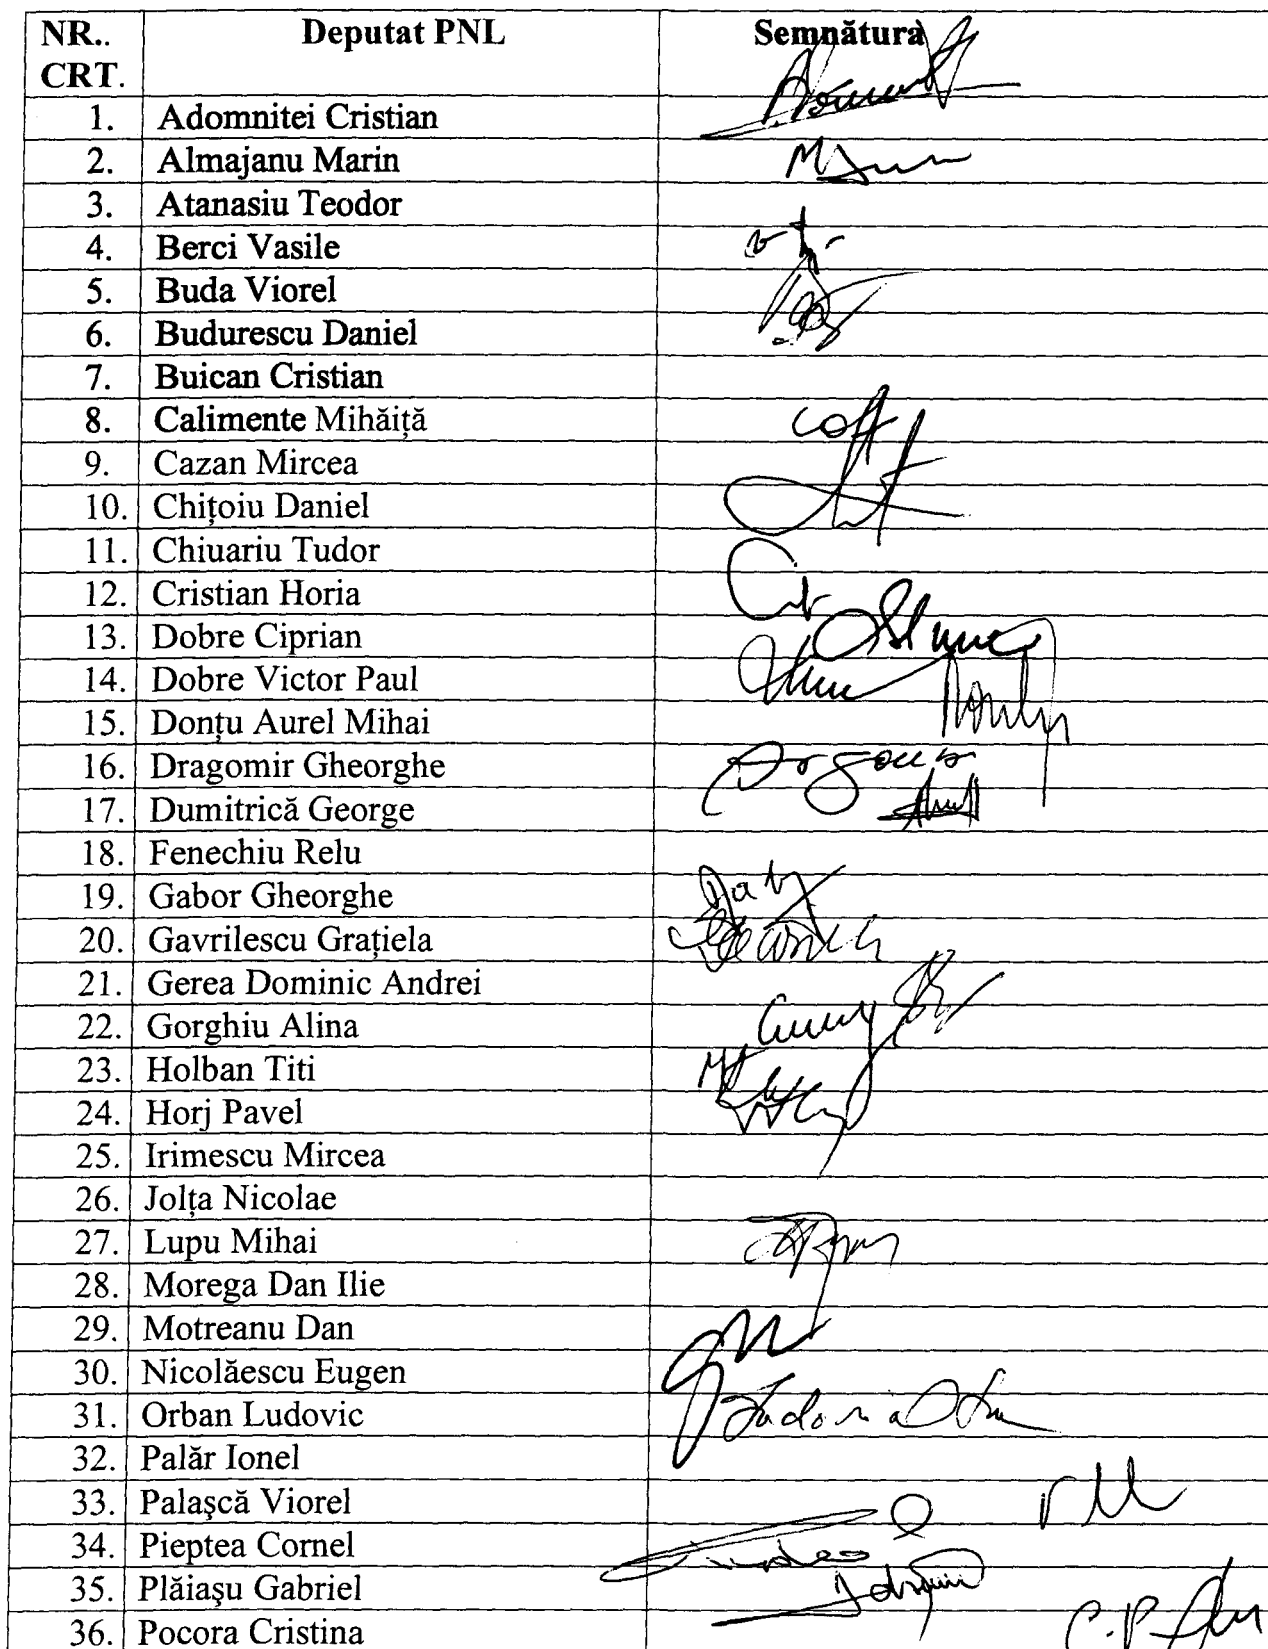 NR.. Deputat PNL Semnătura
CRT.
1. Adomnitei Cristian
2. Almajanu Marin
3. Atanasiu Teodor
4. Berci Vasile
5. Buda Viorel
6. Budurescu Daniel
7. Buican Cristian
8. Calimente Mihăiță
9. Cazan Mircea
10. Chițoiu Daniel
11. Chiuariu Tudor
12. Cristian Horia
13. Dobre Ciprian
14. Dobre Victor Paul
15. Donțu Aurel Mihai
16. Dragomir Gheorghe
17. Dumitrică George
18. Fenechiu Relu
19. Gabor Gheorghe
20. Gavrilescu Grațiela
21. Gerea Dominic Andrei
22. Gorghiu Alina
23. Holban Titi
24. Horj Pavel
25. Irimescu Mircea
26. Jolța Nicolae
27. Lupu Mihai
28. Morega Dan Ilie
29. Motreanu Dan
30. Nicolăescu Eugen
31. Orban Ludovic
32. Palăr Ionel
33. Palaşcă Viorel
34. Pieptea Cornel
35. Plăiaşu Gabriel
36. Pocora Cristina